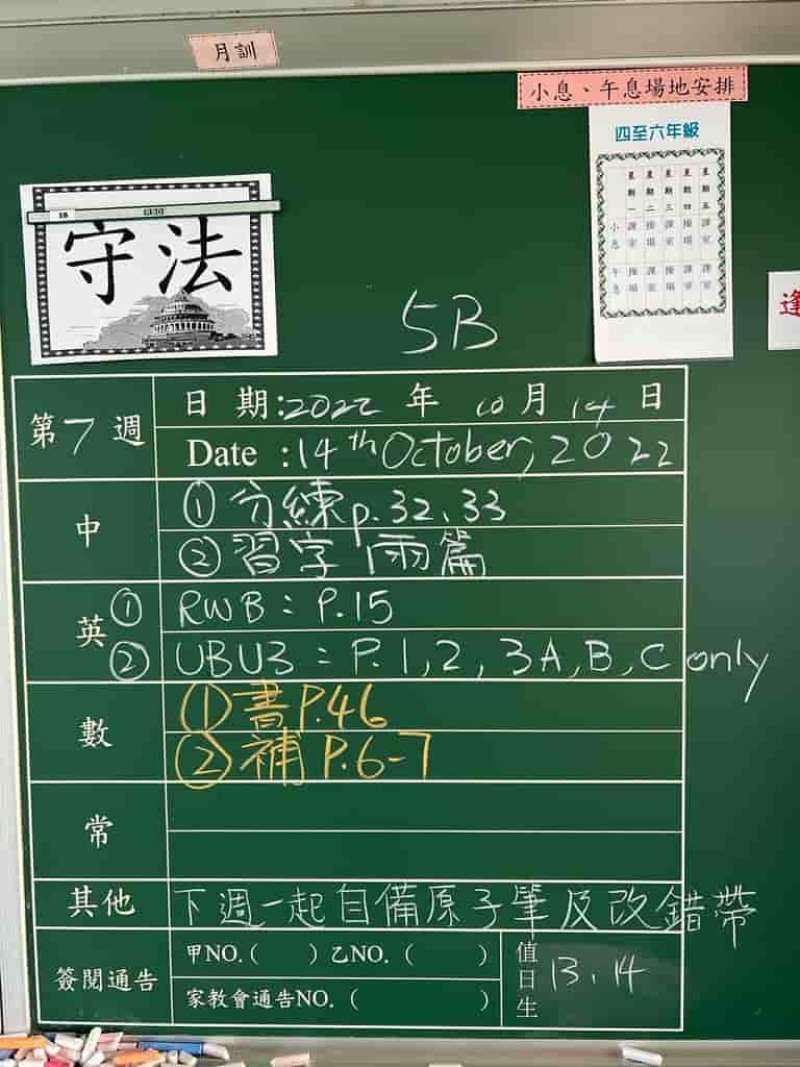 月訓
小息、午息場地安排
四至六年級
星期一 星期二 星期三 星期四 星期五
小息 課室 操場 課室 操場 課室
守法
逢
5B
第7週
日期:2022年10月14日
Date :14th October, 2022
中
① 分練p.32、33
② 習字 雨篇
英
① RWB : P.15
② UBU3 : P.1,2,3A,B,C only
數
① 書P.46
② 補P.6-7
常
其他
下週一起自備原子筆及改錯帶
簽閱通告
甲NO.( )乙NO.( )
家教會通告NO.( )
值日生
13、14